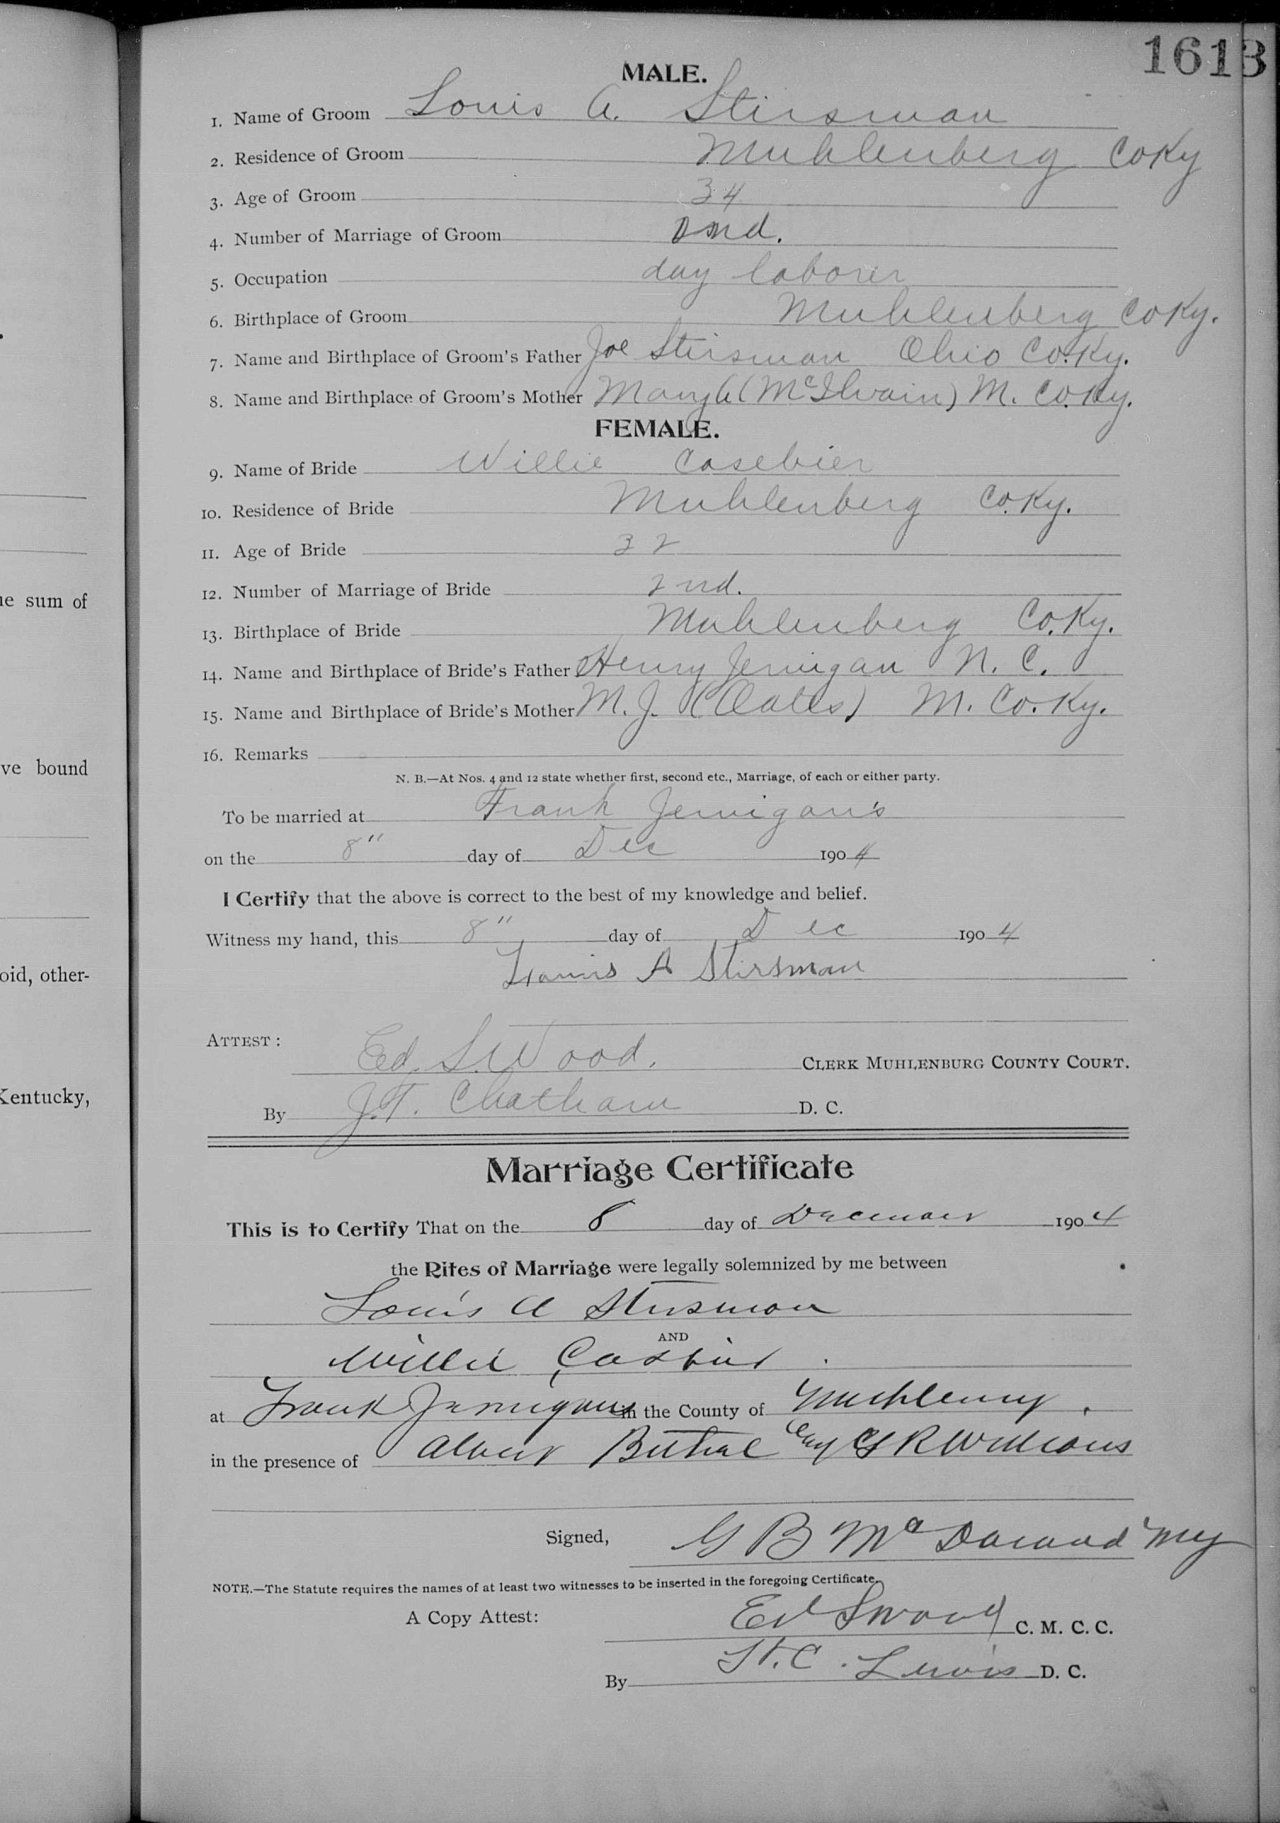 1613
MALE.
1. Name of Groom Louis A. Stirsman
2. Residence of Groom Muhlenberg Co Ky
3. Age of Groom 34
4. Number of Marriage of Groom 2nd.
5. Occupation day laborer
6. Birthplace of Groom Muhlenberg Co Ky.
7. Name and Birthplace of Groom's Father Joe Stirsman Ohio Co. Ky.
8. Name and Birthplace of Groom's Mother Mary A (McIlvain) M. Co. Ky.
FEMALE.
9. Name of Bride Willie Casebier
10. Residence of Bride Muhlenberg Co. Ky.
11. Age of Bride 32
12. Number of Marriage of Bride 2nd.
13. Birthplace of Bride Muhlenberg Co. Ky.
14. Name and Birthplace of Bride's Father Henry Jernigan N. C.
15. Name and Birthplace of Bride's Mother M. J. (Oates) M. Co. Ky.
16. Remarks
N. B.—At Nos. 4 and 12 state whether first, second etc., Marriage, of each or either party.
ne sum of
To be married at Frank Jernigan's
ve bound
on the 8" day of Dec 1904
I Certify that the above is correct to the best of my knowledge and belief.
Witness my hand, this 8" day of Dec 1904
oid, other-
Louis A Stirsman
ATTEST: Ed. S. Wood. CLERK MUHLENBURG COUNTY COURT.
Kentucky,
By J. T. Chatham D. C.
Marriage Certificate
This is to Certify That on the 8 day of December 1904
the Rites of Marriage were legally solemnized by me between
Louis A Stirsman
AND
Willie Casbier
at Frank Jernigans in the County of Muhlenberg.
in the presence of Albert G R Williams
Signed, G B
NOTE.—The Statute requires the names of at least two witnesses to be inserted in the foregoing Certificate.
A Copy Attest: Ed S Wood C. M. C. C.
By Lewis D. C.